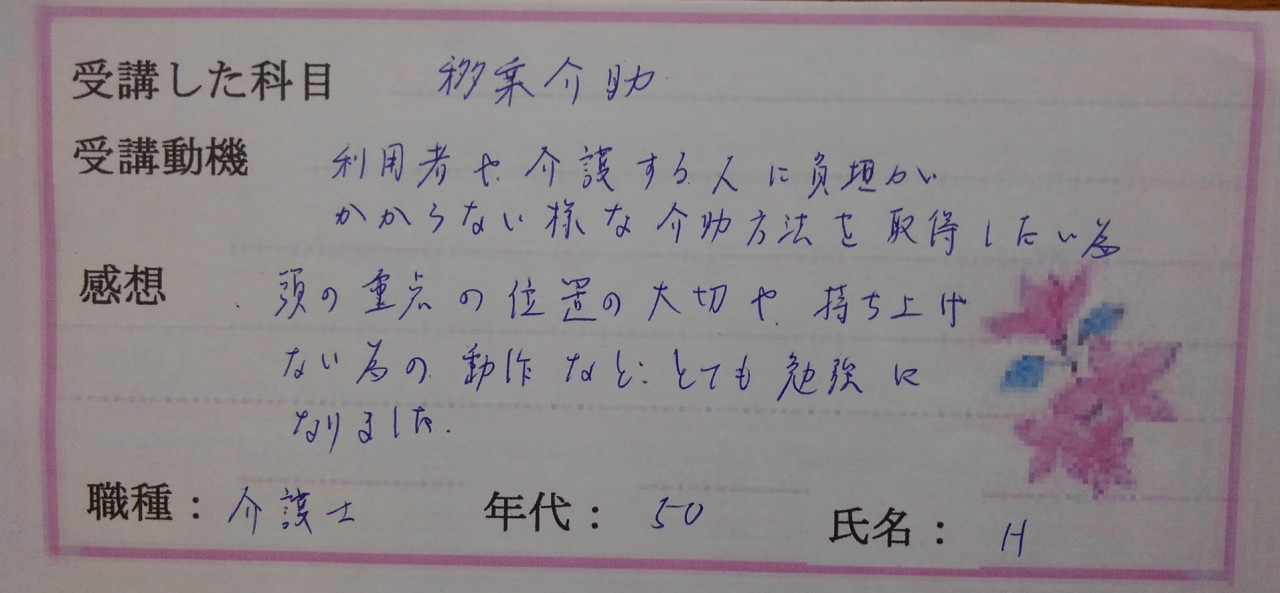 受講した科目 移乗介助
受講動機 利用者や介護する人に負担が
かからない様な介助方法を取得したい為
感想 頭の重点の位置の大切や持ち上げ
ない為の動作など、とても勉強に
なりました.
職種：介護士 年代：50 氏名：H